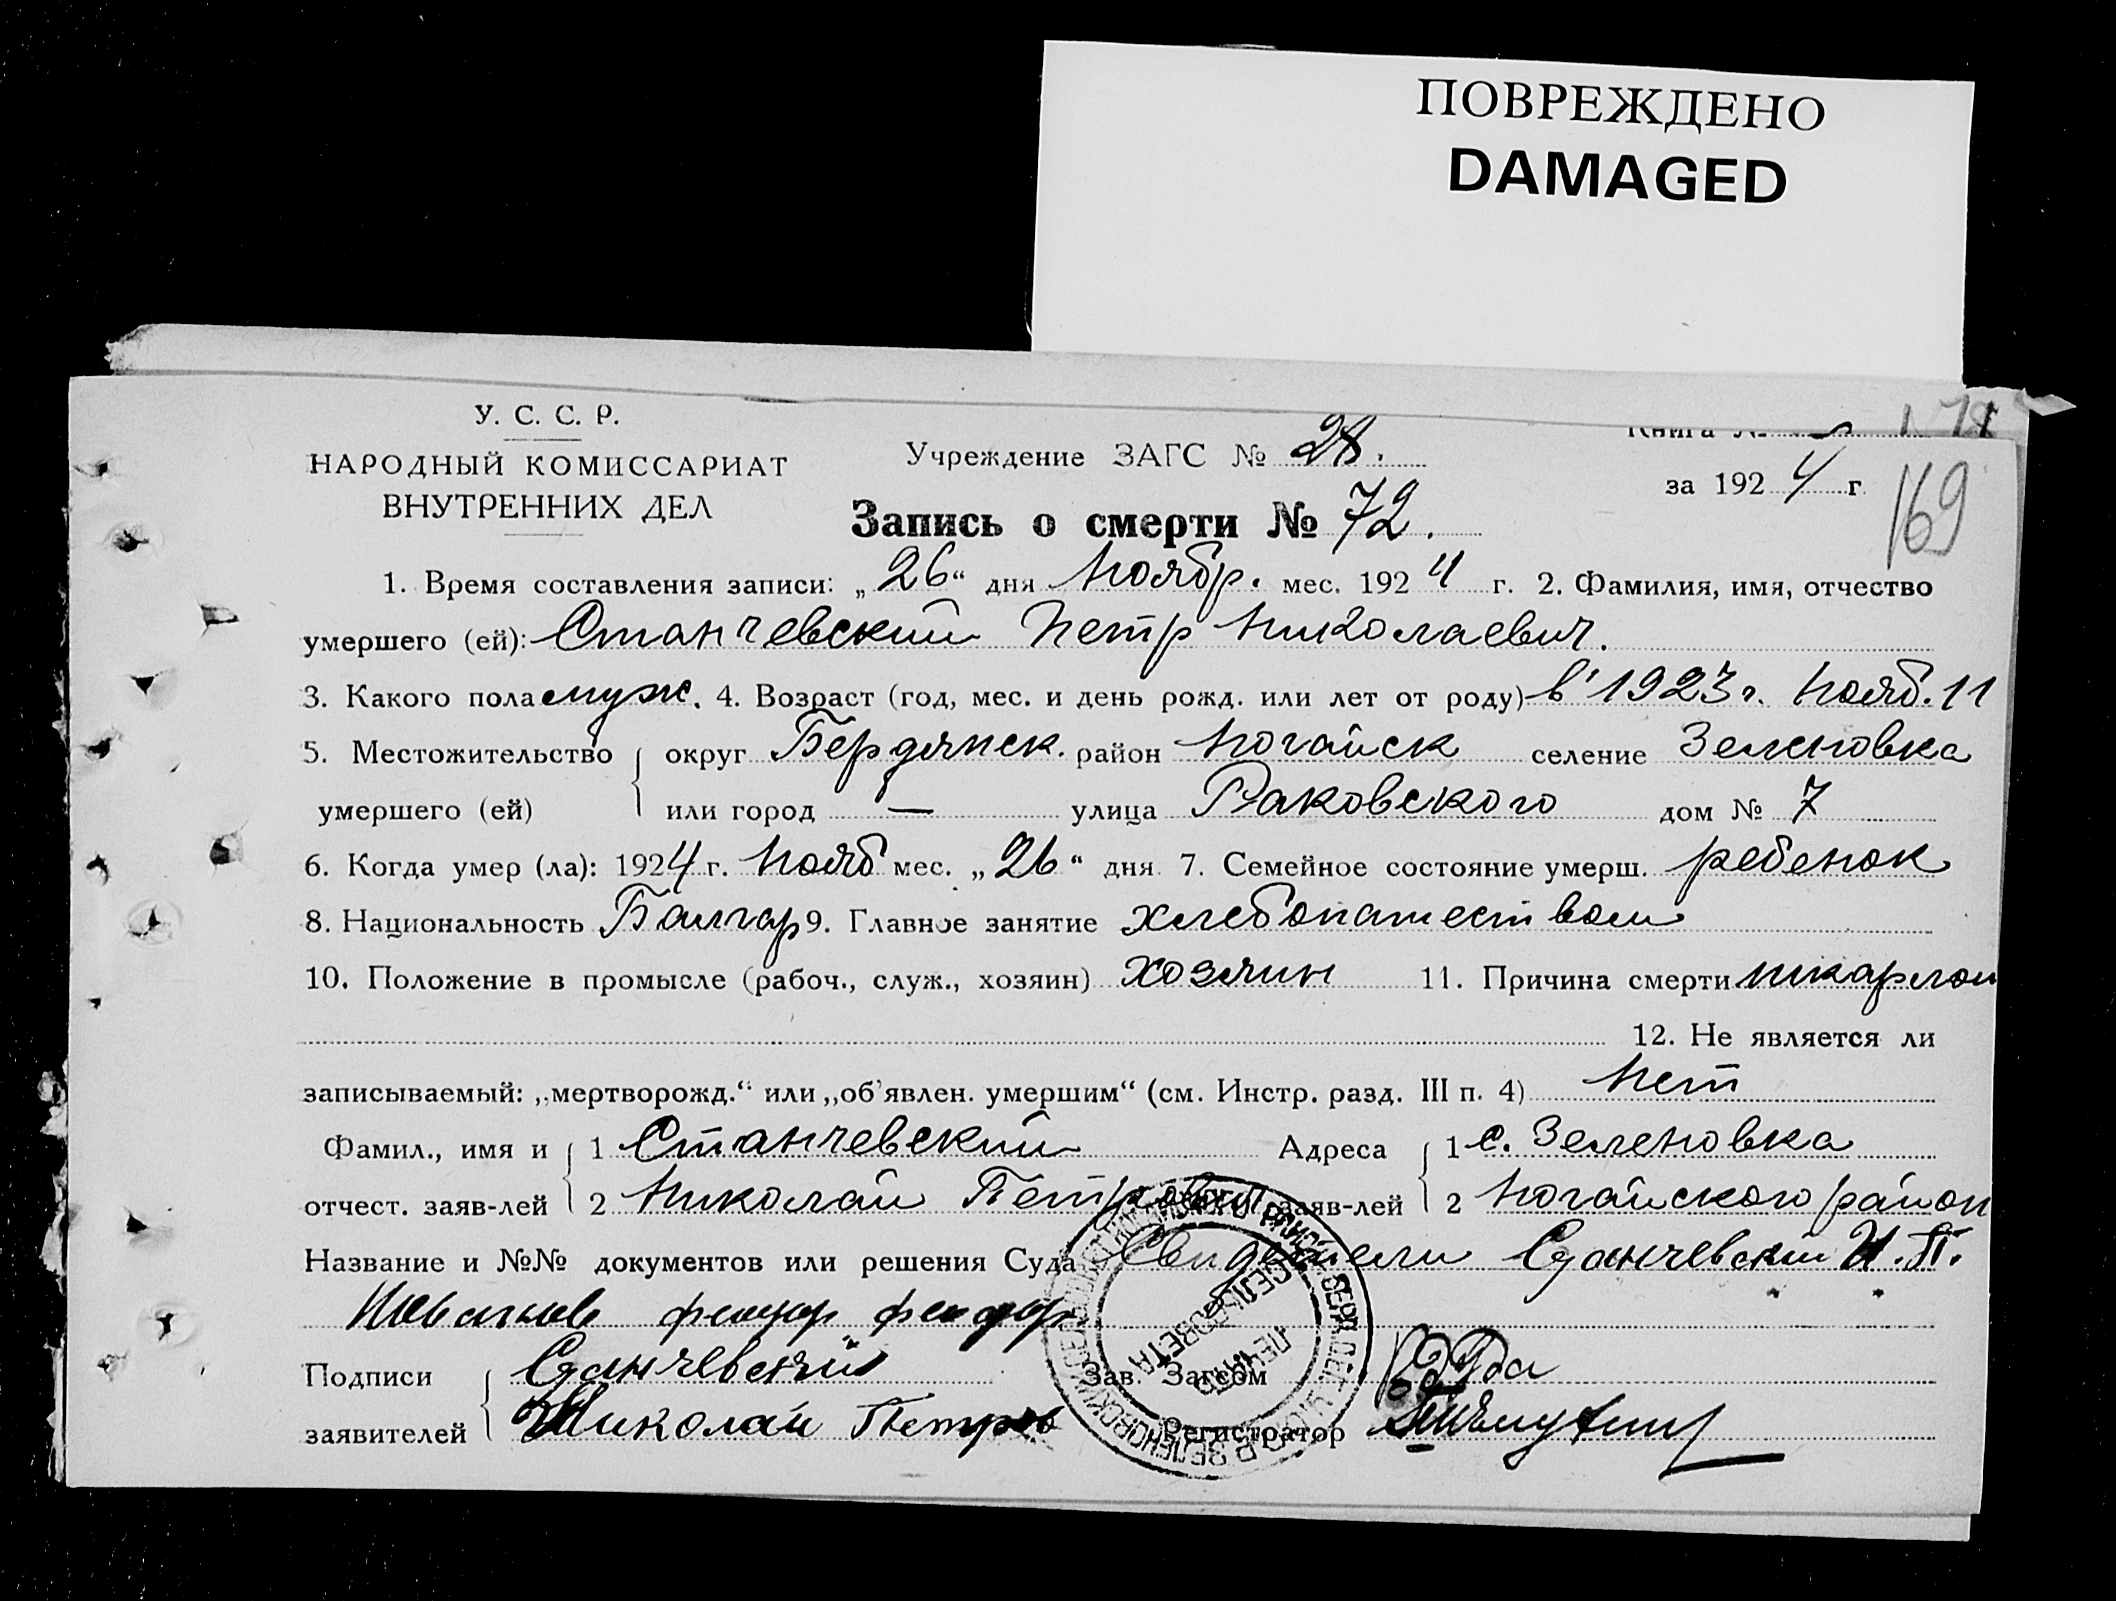 ПОВРЕЖДЕНО
DAMAGED
У. С. С. Р.
НАРОДНЫЙ КОМИССАРИАТ
ВНУТРЕННИХ ДЕЛ
Учреждение ЗАГС № 28.
за 1924 г.
169
Запись о смерти № 72.
1. Время составления записи: „26“ дня Ноябр. мес. 1924 г. 2. Фамилия, имя, отчество
умершего (ей): Станчевский Петр Николаевич.
3. Какого пола муж. 4. Возраст (год, мес. и день рожд. или лет от роду) в 1923 г. Нояб. 11
5. Местожительство округ Бердянск. район Ногайск селение Зеленовка
умершего (ей) или город — улица Раковского дом № 7
6. Когда умер (ла): 1924 г. Нояб мес. „26“ дня. 7. Семейное состояние умерш. ребенок
8. Национальность Болгар 9. Главное занятие хлебопашеством
10. Положение в промысле (рабоч., служ., хозяин) хозяин 11. Причина смерти
12. Не является ли
записываемый: „мертворожд.“ или „об'явлен. умершим“ (см. Инстр. разд. III п. 4) Нет
Фамил., имя и 1 Станчевский Адреса 1 с. Зеленовка
отчест. заяв-лей 2 Николай Петр заяв-лей 2 Ногайского район
Название и №№ документов или решения Суда Свидетели Станчевский И. П.
феодор феодор
Подписи Станчевский Зав. Загсом
заявителей Николай Петров Регистратор
ПЕЧАТЬ
СЕЛЬСОВЕТА